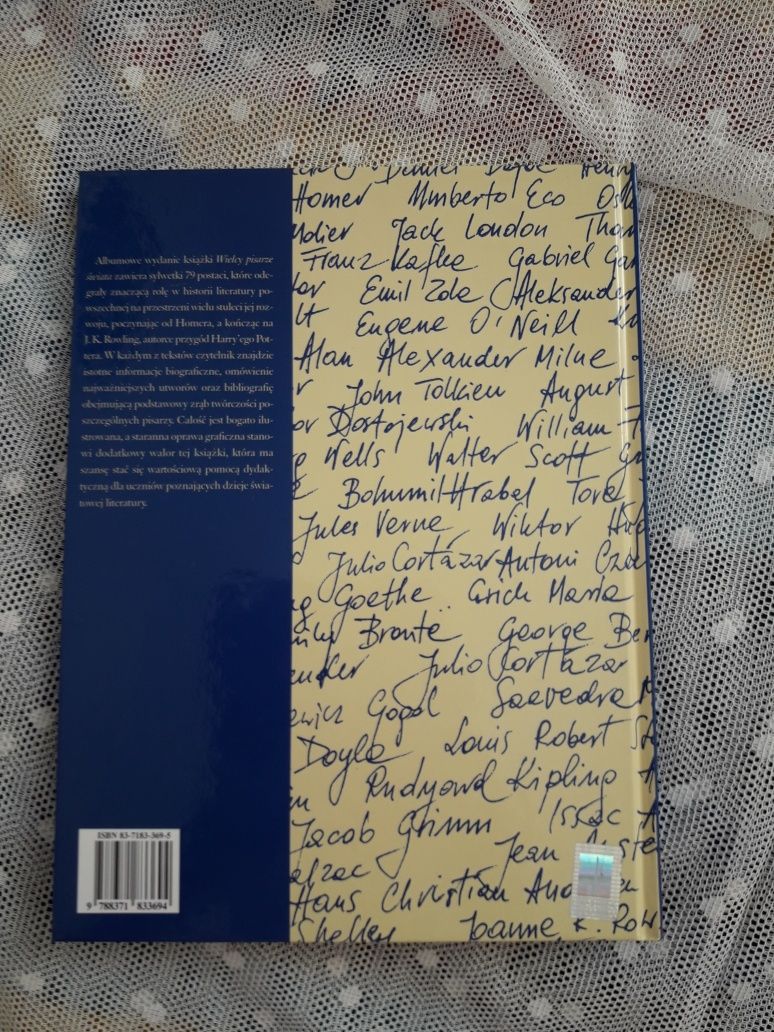 Albumowe wydanie książki Wielcy pisarze
świata zawiera sylwetki 79 postaci, które ode-
grały znaczącą rolę w historii literatury po-
wszechnej na przestrzeni wielu stuleci jej roz-
woju, poczynając od Homera, a kończąc na
J. K. Rowling, autorce przygód Harry'ego Pot-
tera. W każdym z tekstów czytelnik znajdzie
istotne informacje biograficzne, omówienie
najważniejszych utworów oraz bibliografię
obejmującą podstawowy zrąb twórczości po-
szczególnych pisarzy. Całość jest bogato ilu-
strowana, a staranna oprawa graficzna stano-
wi dodatkowy walor tej książki, która ma
szansę stać się wartościową pomocą dydak-
tyczną dla uczniów poznających dzieje świa-
towej literatury.
ISBN 83-7183-369-5
9 788371 833694
Daniel
Homer Umberto Eco Os
Molier Jack London Tho
Franz Kafka Gabriel Ga
Emil Zola Aleksander
lt Eugene O'Neill
Alan Alexander Milne
John Tolkien August
or Dostojewski William F
Wells Walter Scott
Bohumil Hrabal Tove
Jules Verne Wiktor Hu
Julio Cortázar Antoni Cze
Goethe Erich Maria
Brontë George Ber
ander Julio Cortázar
ewicz Gogol Saavedra
Doyle Louis Robert St
Rudyard Kipling
Jacob Grimm Issac A
alzac Jean
Hans Christian And
Shelley Joanne K. Row